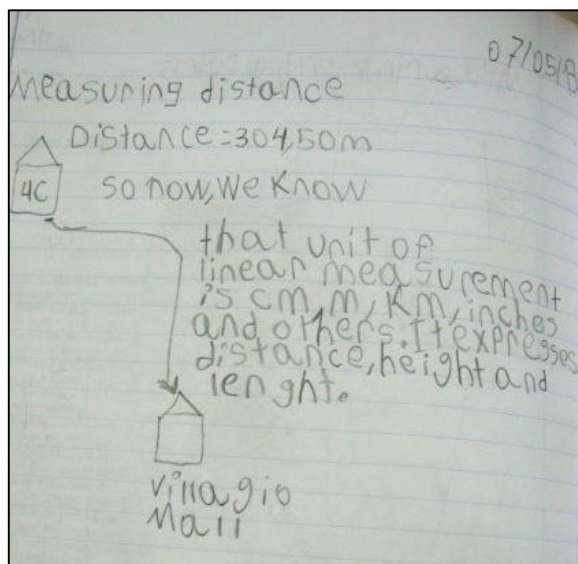 07/05/18
Measuring distance
Distance=304,50m
4C
so now, we know
that unit of
linear measurement
is cm, m, Km, inches
and others. It expresses
distance, height and
lenght.
villagio
Mall